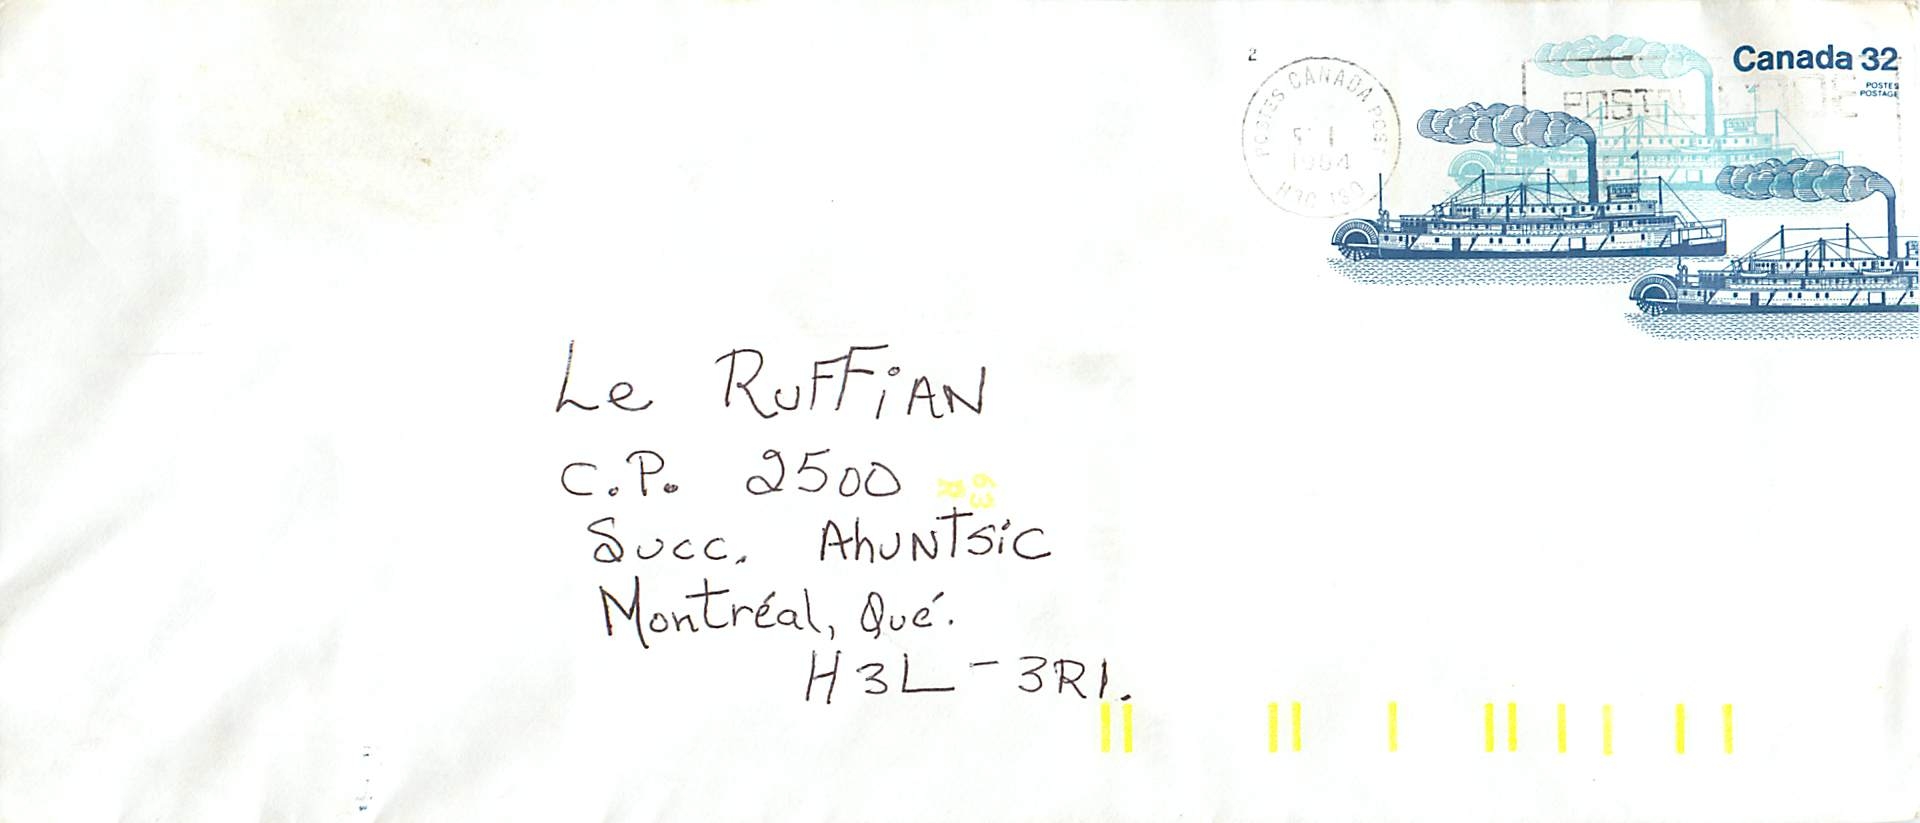 2
Canada 32
POSTES
POSTAGE
POSTES CANADA POST
1984
POSTAL CODE
Le RUFFiAN
C.P. 2500
63
R
Succ. AhuNTSiC
Montréal, Qué.
H3L - 3R1.